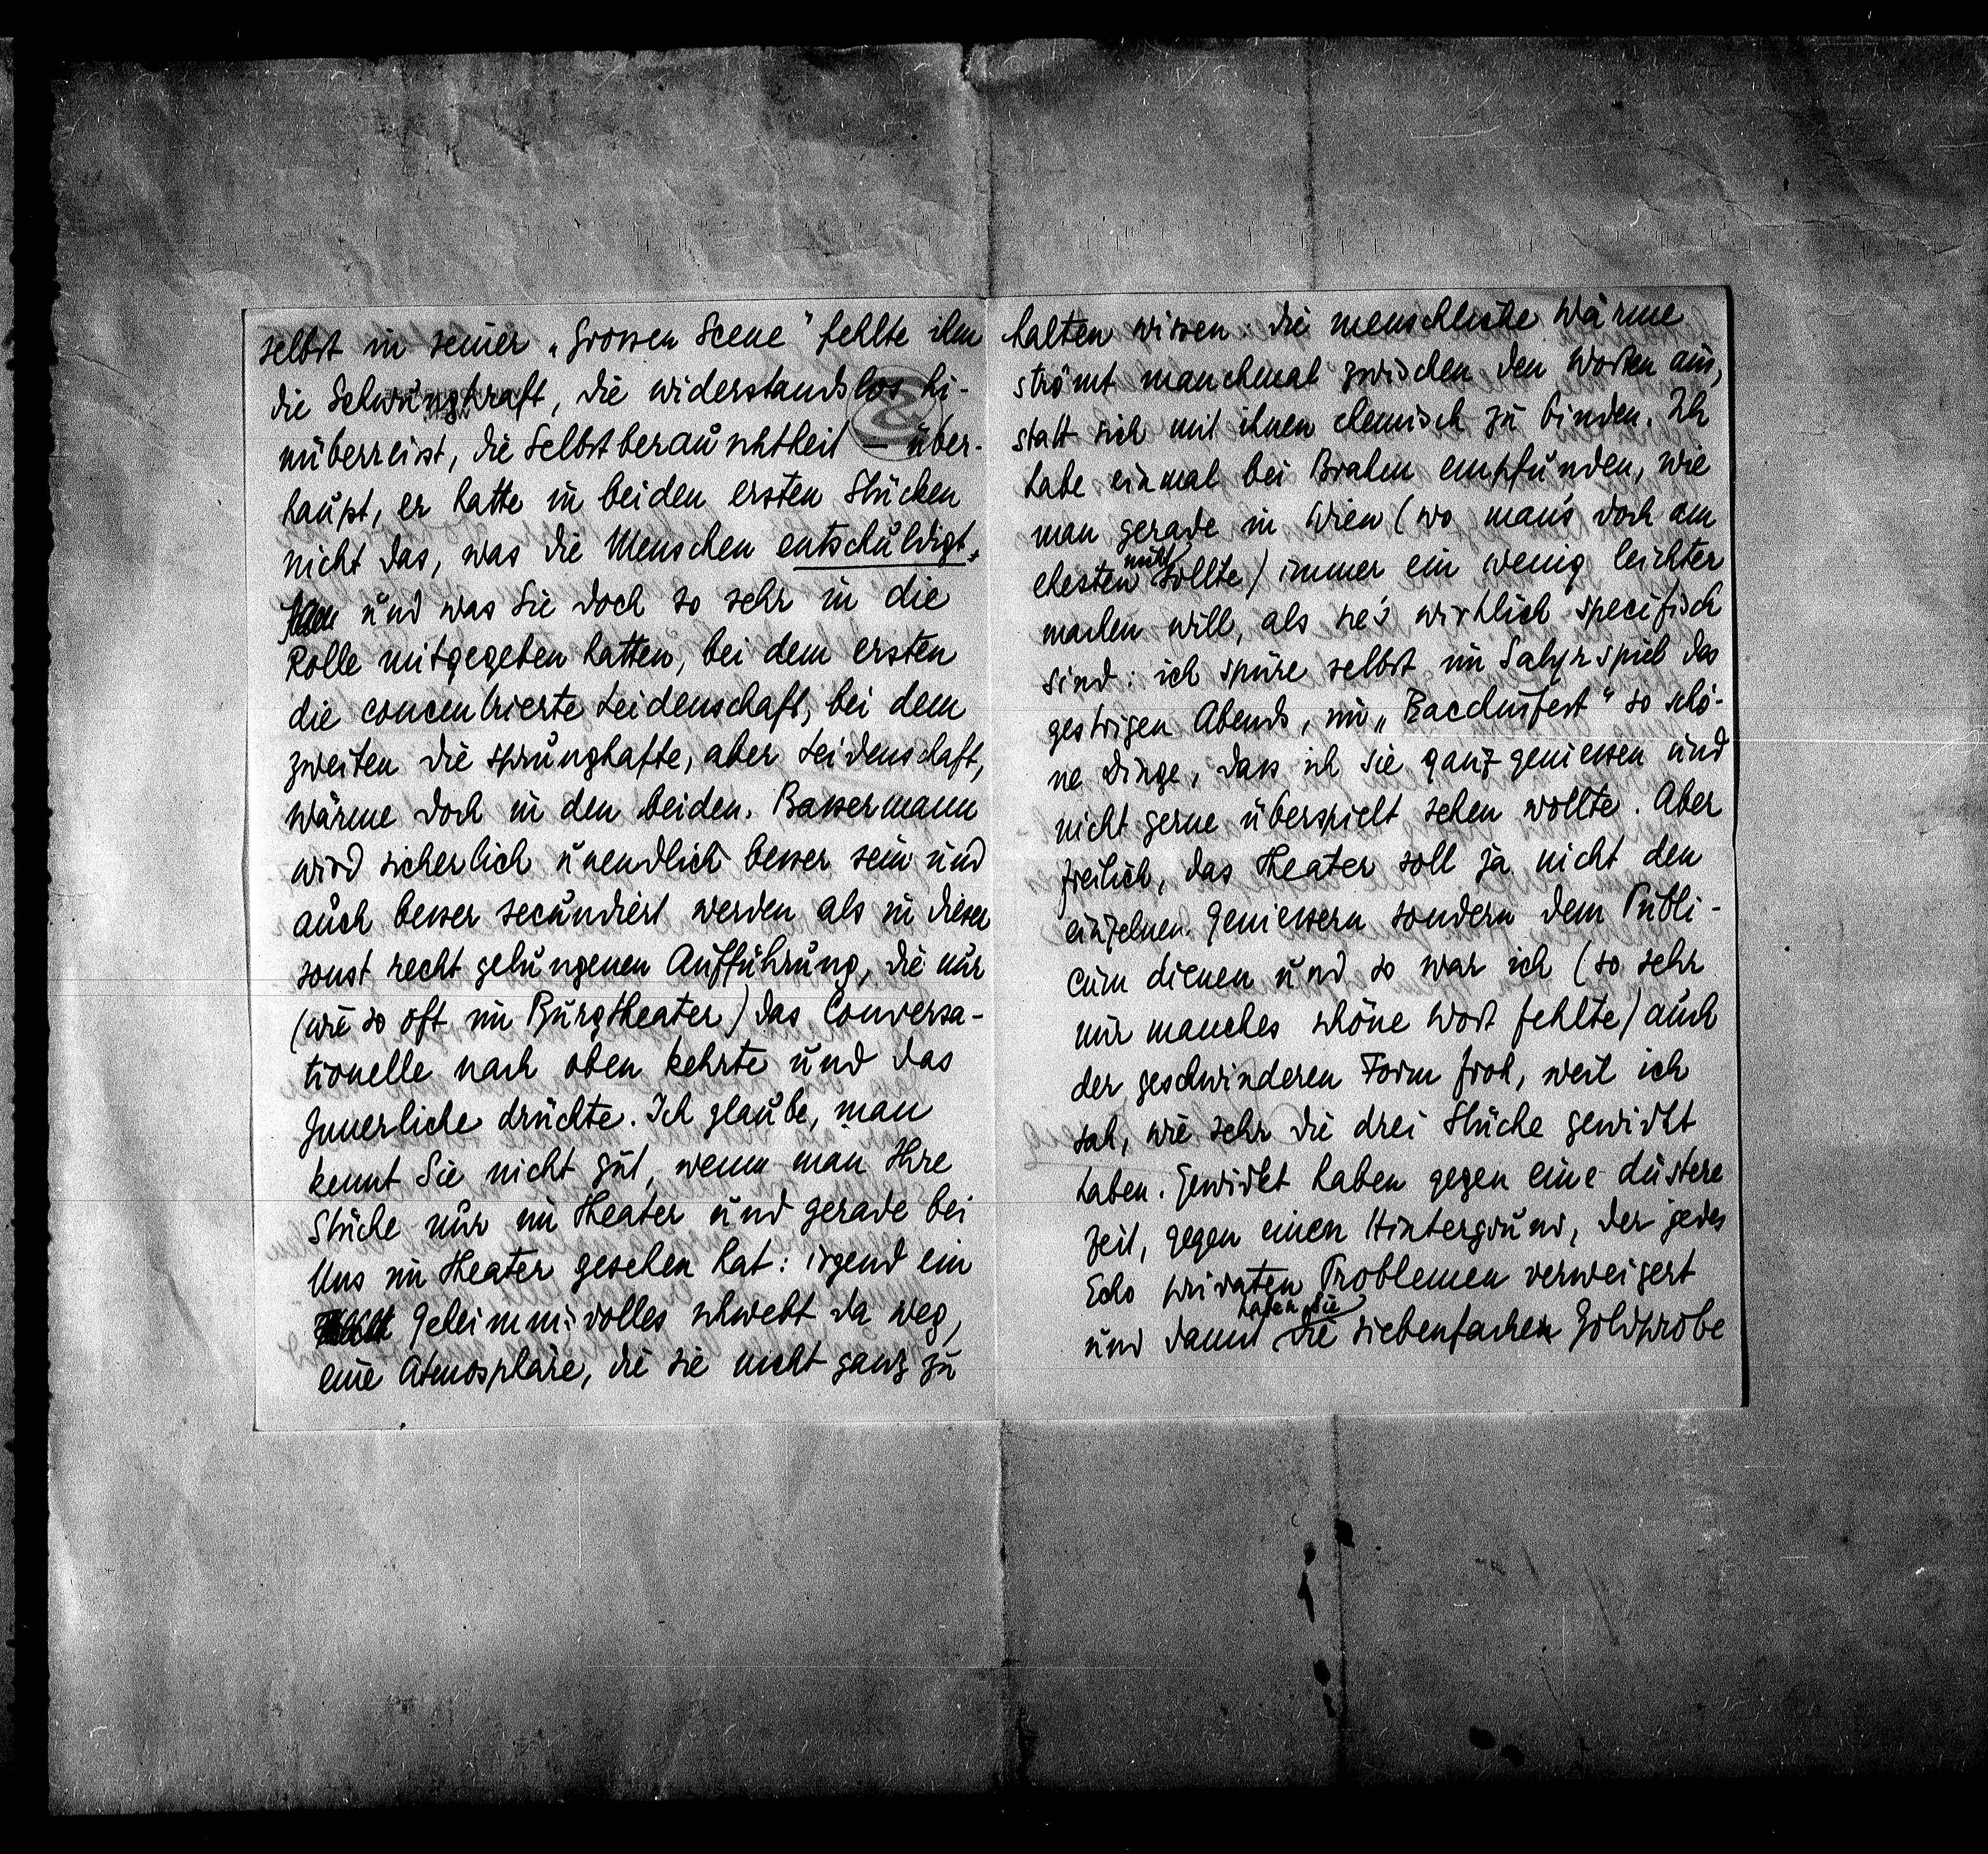 selbst in seiner „Grossen Scene" fehlte ihm
die Schwungkraft, die widerstandslos hi-
nüberreisst, die Selbstberauschtheit – über-
haupt, er hatte in beiden ersten Stücken
nicht das, was die Menschen entschuldigt,
und was Sie doch so sehr in die
Rolle mitgegeben hatten, bei dem ersten
die concentrierte Leidenschaft, bei dem
zweiten die sprunghafte, aber Leidenschaft,
Wärme doch in den beiden. Bassermann
wird sicherlich unendlich besser sein und
auch besser secundiert werden als in dieser
sonst recht gelungenen Aufführung, die nur
(wie so oft im Burgtheater) das Conversa-
tionelle nach oben kehrte und das
Innerliche drückte. Ich glaube, man
kennt Sie nicht gut, wenn man Ihre
Stücke nur im Theater und gerade bei
Uns im Theater gesehen hat: irgend ein
Geheimnisvolles schwebt da weg,
eine Atmosphäre, die sie nicht ganz zu
halten wissen: die menschliche Wärme
strömt manchmal zwischen den Worten aus,
statt sich mit ihnen chemisch zu binden. Ich
habe einmal bei Brahm empfunden, wie
man gerade in Wien (wo man's doch am
ehesten nicht sollte) immer ein wenig leichter
machen will, als sie's wirklich specifisch
sind: ich spüre selbst im Satyrspiel des
gestrigen Abends, im „Bacchusfest" so schö-
ne Dinge, dass ich sie ganz geniessen und
nicht gerne überspielt sehen wollte. Aber
freilich, das Theater soll ja nicht den
einzelnen Geniessern sondern dem Publi-
cum dienen und so war ich (so sehr
mir manches schöne Wort fehlte) auch
der geschwinderen Form froh, weil ich
sah, wie sehr die drei Stücke gewirkt
haben. Gewirkt haben gegen eine düstere
Zeit, gegen einen Hintergrund, der jedes
Echo privaten Problemen verweigert
und damit haben Sie die siebenfache Goldprobe